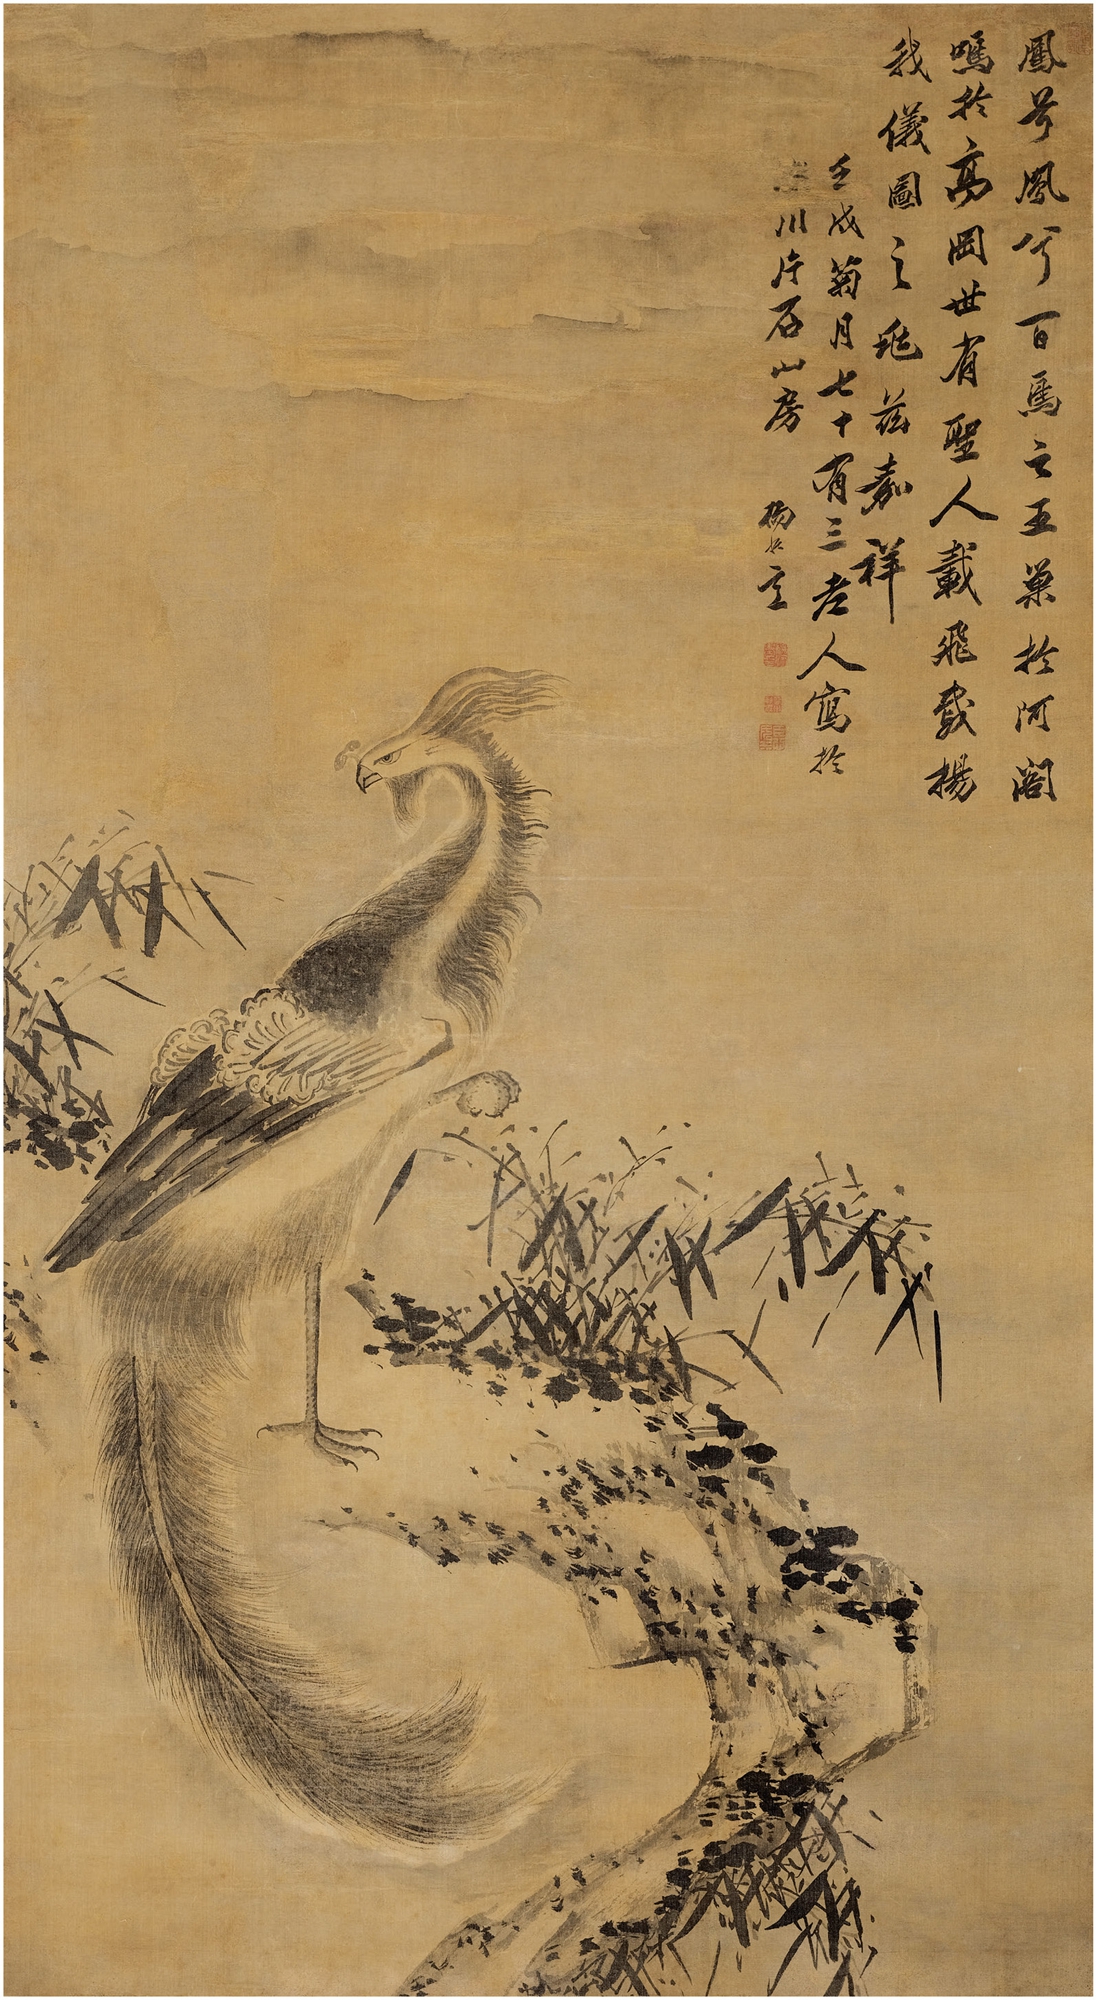 鳳兮鳳兮百鳥之王巢於阿閣
鳴於高岡世有聖人載飛載揚
我儀圖之兆茲嘉祥
壬戌菊月七十有三老人寫於
川片石山房